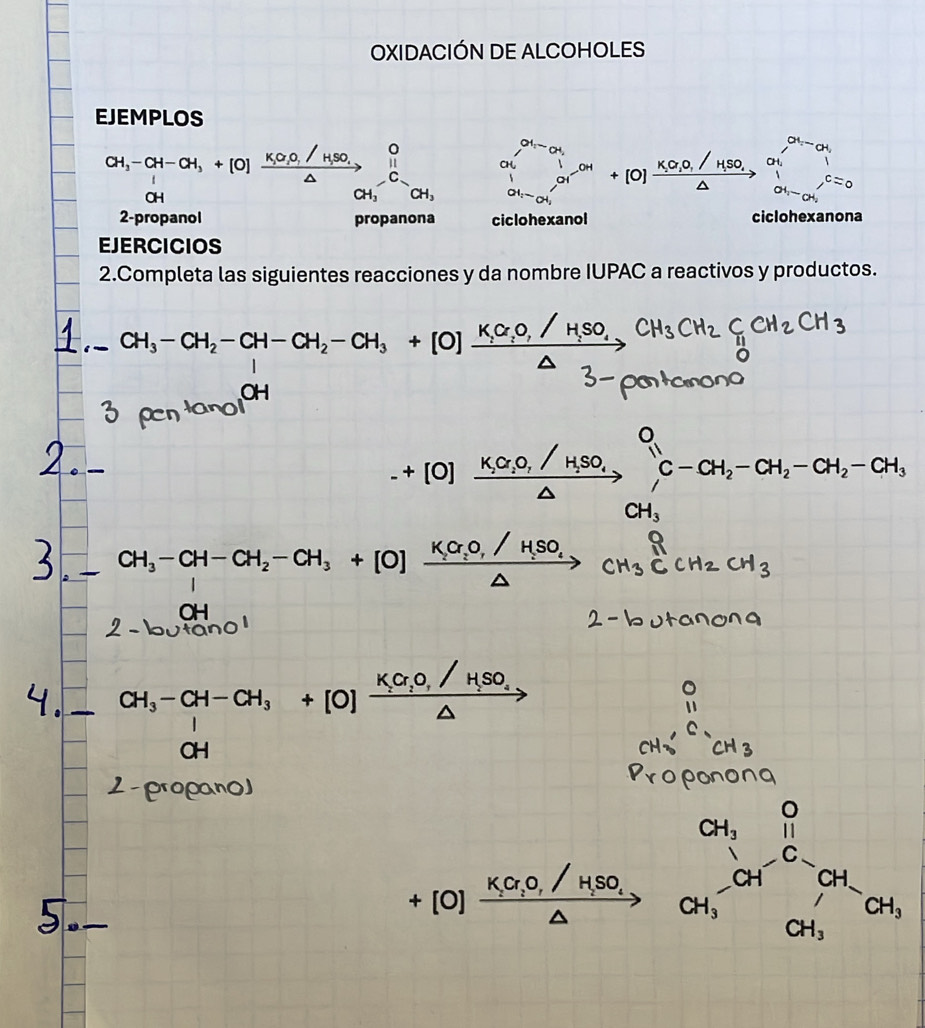 OXIDACIÓN DE ALCOHOLES
EJEMPLOS
CH₃-CH-CH₃ + [O] K₂Cr₂O₇ / H₂SO₄ Δ
OH
2-propanol
O
||
C
CH₃ CH₃
propanona
CH₂-CH₂
CH₂ CH OH
CH₂-CH₂
ciclohexanol
+ [O] K₂Cr₂O₇ / H₂SO₄ Δ
CH₂-CH₂
CH₂ C=O
CH₂-CH₂
ciclohexanona
EJERCICIOS
2.Completa las siguientes reacciones y da nombre IUPAC a reactivos y productos.
1.- CH₃-CH₂-CH-CH₂-CH₃ + [O] K₂Cr₂O₇ / H₂SO₄ Δ CH3 CH2 C CH2 CH3
OH O
3 pentanol 3-pentanona
2.- - + [O] K₂Cr₂O₇ / H₂SO₄ Δ
O
||
C-CH₂-CH₂-CH₂-CH₃
CH₃
3.- CH₃-CH-CH₂-CH₃ + [O] K₂Cr₂O₇ / H₂SO₄ Δ
OH
O
CH3 C CH2 CH3
2-butanol 2-butanona
4.- CH₃-CH-CH₃ + [O] K₂Cr₂O₇ / H₂SO₄ Δ
OH
O
||
C
CH3 CH3
2-propanol Propanona
5.- + [O] K₂Cr₂O₇ / H₂SO₄ Δ
CH₃ O
||
C
CH CH
CH₃ CH₃
CH₃